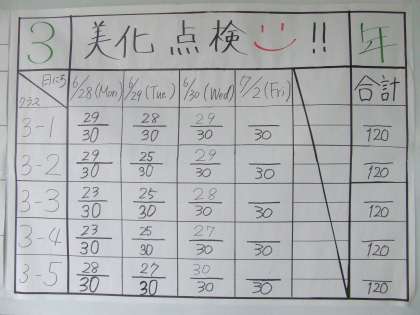 3 美化点検 !! 年
日にち 6/28(Mon) 6/29(Tue) 6/30(Wed) 7/2(Fri) 合計
クラス
3-1 29/30 28/30 29/30 /30 /120
3-2 29/30 25/30 29/30 /30 /120
3-3 23/30 25/30 28/30 /30 /120
3-4 23/30 25/30 27/30 /30 /120
3-5 28/30 27/30 30/30 /30 /120